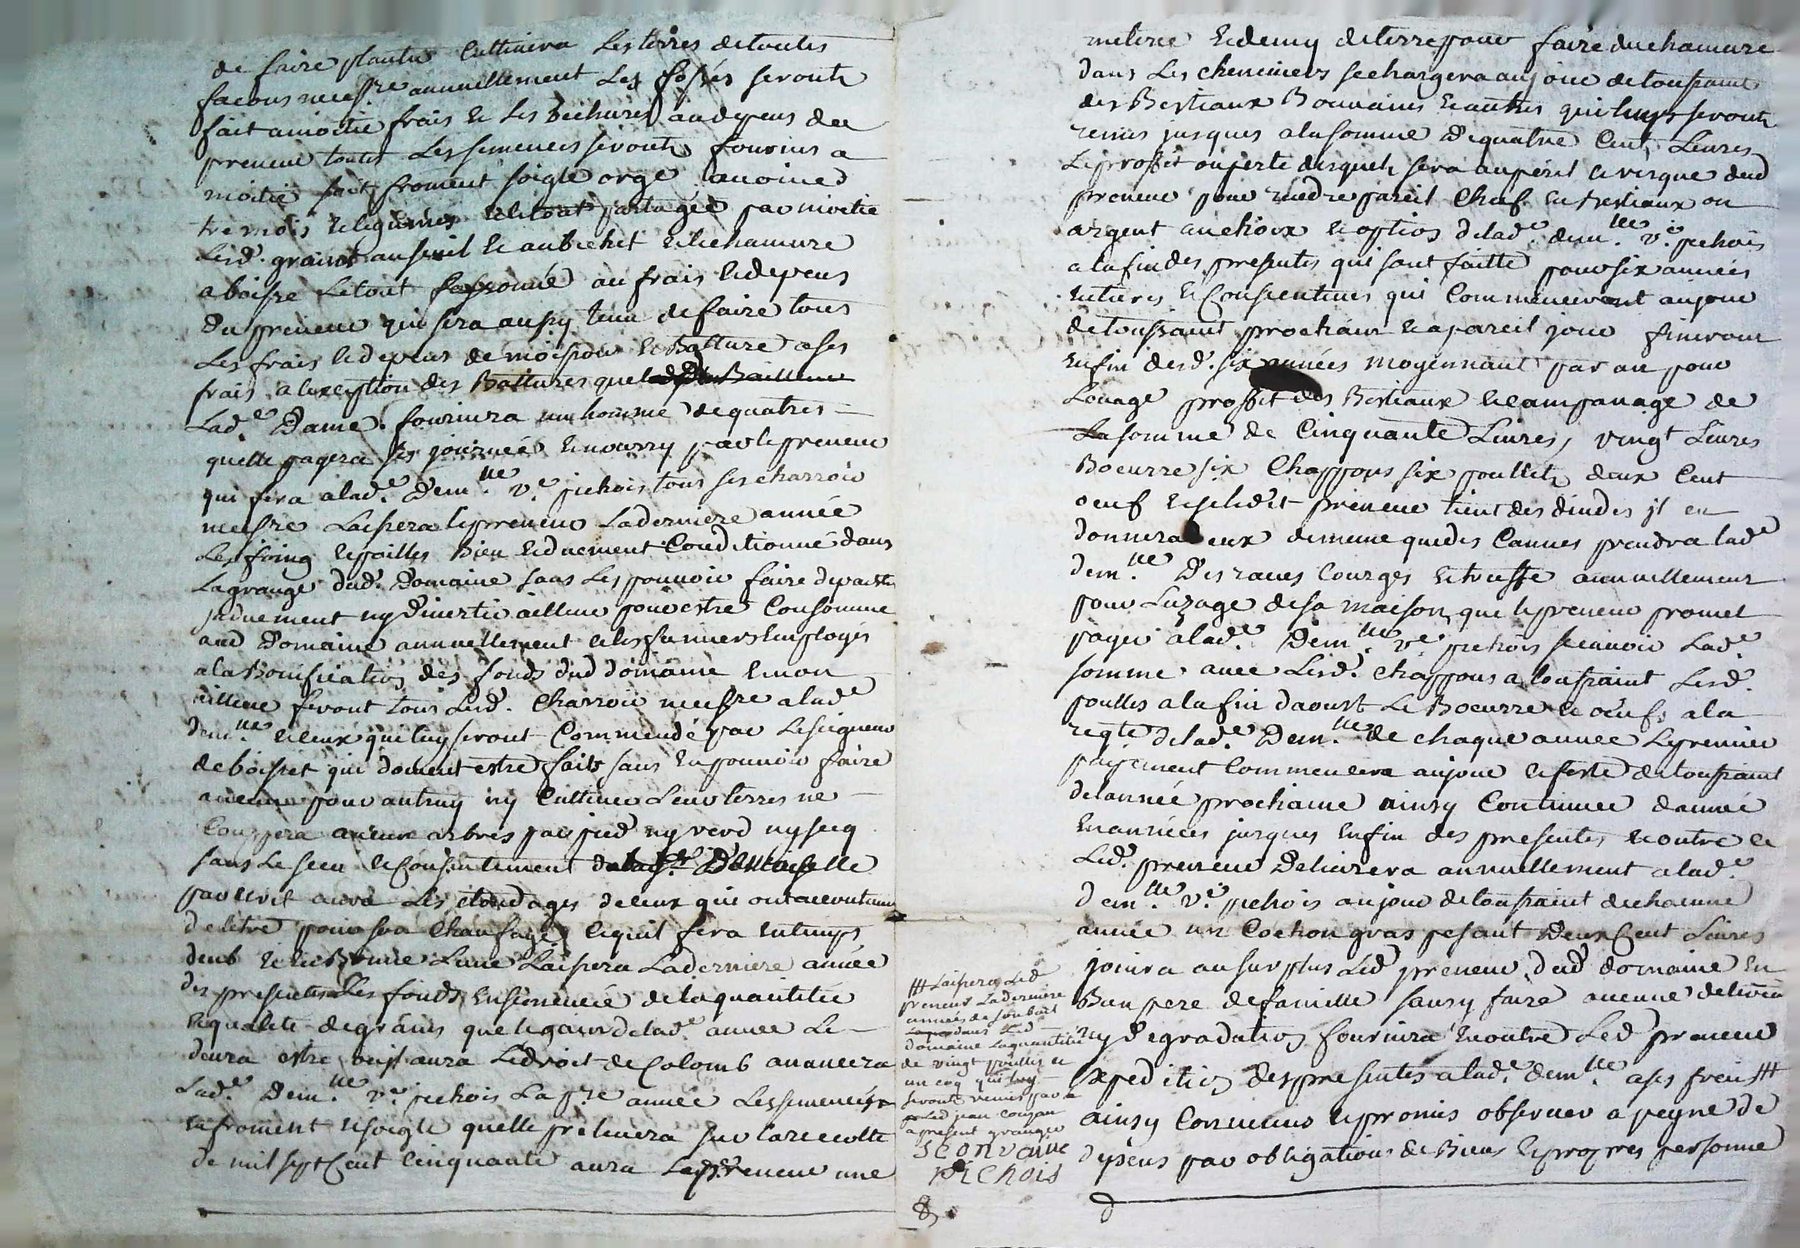 de faire planter Cultivera Les terres de toutes
facons necessre annuellement Les fossés seronts
fait a moitie frais & Les bechures aud depens du
preneur toutes Les semences seronts fournies a
moitie soit froment soigle orge avoine
tremois & legumes & le tout partagée par moitie
Lesd. grains au seuil & au bichet & le chanvre
a boisse Le tout fassonné au frais & depens
Du preneur qui sera aussy tenu de faire tous
Les frais & depens de moisson & Batture a ses
frais a lexception des Battures que
Lad.e Dame fournira un homme de quatres
quelle payera ses journée & nourry par le preneur
qui fera a lad.e Dem.lle v.e pichois tous ses charrois
necessre Laissera le preneur La derniere année
Les foing & pailles Bien & duement Conditionné dans
La grange dud. Domaine sans Les pouvoir faire depaitre
induement ny Divertir ailleur pour estre Consommé
aud Domaine annuellement & les fumiers Employés
a la Bonification des fonds dud domaine & non
ailleur feront tous Lesd. Charrois necessre a lad.e
dem.lle & ceux que luy seront Commendé par Le seigneur
de boisset qui doivent estre faits sans En pouvoir faire
aucune pour autruy ny Cultiver Leur terres ne
Couppera aucuns arbres par pied ny verd ny secq
sans Le sceu & Consentement de lad. Demoiselle
par ecrit aura Les élondages de ceux qui ont accoutumé
De letre pour son Chaufage ce quil fera En temps
deub & en Bonne Lune Laissera La derniere année
des presentes Les fonds Ensemencée de la quantitée
& qualité de grains que le gain de lad.e année Le
devra estre aura Le droit de Colomb avancera
Lad.e Dem.lle v.e pichois La p.re année Les semences
En froment & soigle quelle prelevera sur la recolte
de mil sept Cent Cinquante aura Led. preneur une
### Laissera Led
preneur La derniere
année
domaine La quantitée
de vingt poulles et
un coq qui luy
seronts remis par
led jean
a present granger
Sconvaine
PiChois
meterée & demy de terre pour faire du chanvre
dans Les cheneviers se chargera au jour de toussaint
des Bestiaux Bouvaines & autres qui luy seronts
remis jusques a la somme De quatre Cent Livres
Le proffit ou perte desquels sera au péril & risque dud
preneur pour rendre pareil Chef En bestiaux ou
argent au choix & option de lad.e dem.lle v.e pichois
a la fin des presentes qui sont faitte pour six années
entieres & Consecutives qui Commenceront au jour
de toussaint prochain & a pareil jour finiront
En fin desd. six années moyennant par an pour
Louage proffit des Bestiaux & campanage de
La somme de Cinquante Livres, vingt Livres
Boeurre six Chappons six poullets deux Cent
oeuf & si ledit preneur tient des dindes il en
donnera deux de meme que des Cannes prendra lad.e
dem.lle Des raves Courges & truffe annuellement
pour Luzage de sa maison que le preneur promet
payer à lad.e Dem.lle v.e pichois scavoir Lad.e
somme avec Lesd. chappons a toussaint Lesd.
poulles a la fin daoust Le Boeurre & oeufs a la
reqte. de lad.e Dem.lle de chaque année Le premier
payement Commencera au jour & feste de toussaint
de lannée prochaine ainsy Continuer dannée
En années jusques En fin des presentes & outre ce
Led. preneur Delivrera annuellement a lad.e
dem.lle v.e pichois au jour de toussaint de chacune
année un Cochon gras pesant Deux Cent Livres
jouira au surplus Led preneur dud domaine En
Bon pere de famille sans y faire aucune deterion
ny Degradation fournira En outre Led preneur
Expedition des presentes a lad.e dem.lle a ses frais ###
ainsy Convenu & promis observer a peyne de
depens par obligations de Biens & propres personne